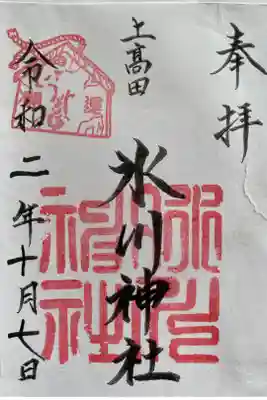 奉拝
上高田
氷川神社
令和二年十月七日
氷川
神社